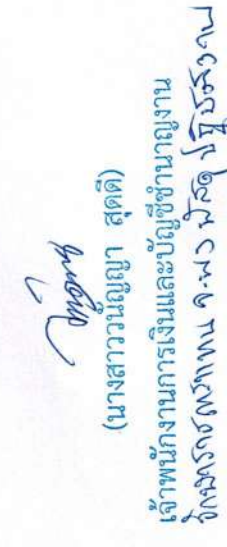 (นางสาววนัญญา สุดดี)
เจ้าพนักงานการเงินและบัญชีชำนาญงาน
รักษาราชการแทน จ.พ.พัสดุ ปฏิบัติงาน